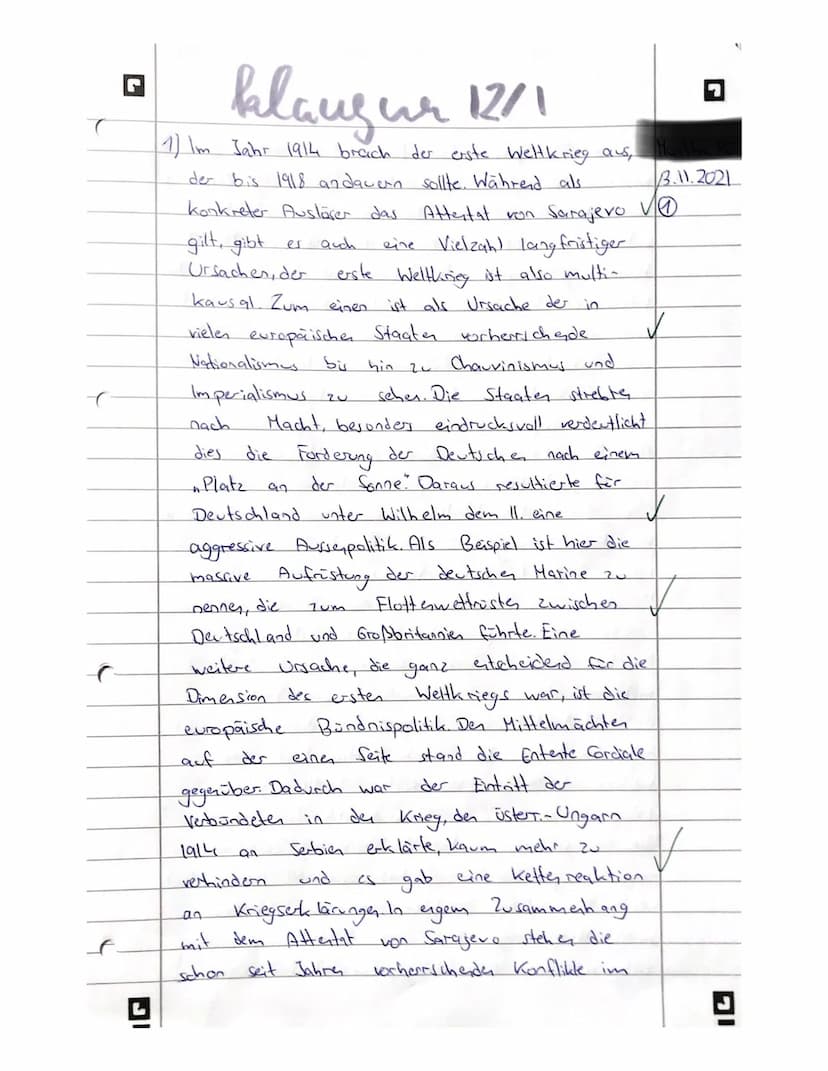 Klausur 12/1
1) Im Jahr 1914 brach der erste Weltkrieg aus,
der bis 1918 andauern sollte. Während als
13.11.2021
konkreter Auslöser das Attentat von Sarajevo ✓①
gilt, gibt es auch eine Vielzahl langfristiger
Ursachen, der erste Weltkrieg ist also multi-
kausal. Zum einen ist als Ursache der in
vielen europäischen Staaten vorherrschende ✓
Nationalismus bis hin zu Chauvinismus und
Imperialismus zu sehen. Die Staaten strebten
nach Macht, besonders eindrucksvoll verdeutlicht
dies die Forderung der Deutschen nach einem
„Platz an der Sonne“. Daraus resultierte für
Deutschland unter Wilhelm dem II. eine ✓
aggressive Aussenpolitik. Als Beispiel ist hier die
massive Aufrüstung der deutschen Marine zu
nennen, die zum Flottenwettrüsten zwischen ✓
Deutschland und Großbritannien führte. Eine
weitere Ursache, die ganz entscheidend für die
Dimension des ersten Weltkriegs war, ist die
europäische Bündnispolitik. Den Mittelmächten
auf der einen Seite stand die Entente Cordiale
gegenüber. Dadurch war der Eintritt der
Verbündeten in den Krieg, den Österr.-Ungarn
1914 an Serbien erklärte, kaum mehr zu ✓
verhindern und es gab eine Kettenreaktion
an Kriegserklärungen. In engem Zusammenhang
mit dem Attentat von Sarajevo stehen die
schon seit Jahren vorherrschenden Konflikte im